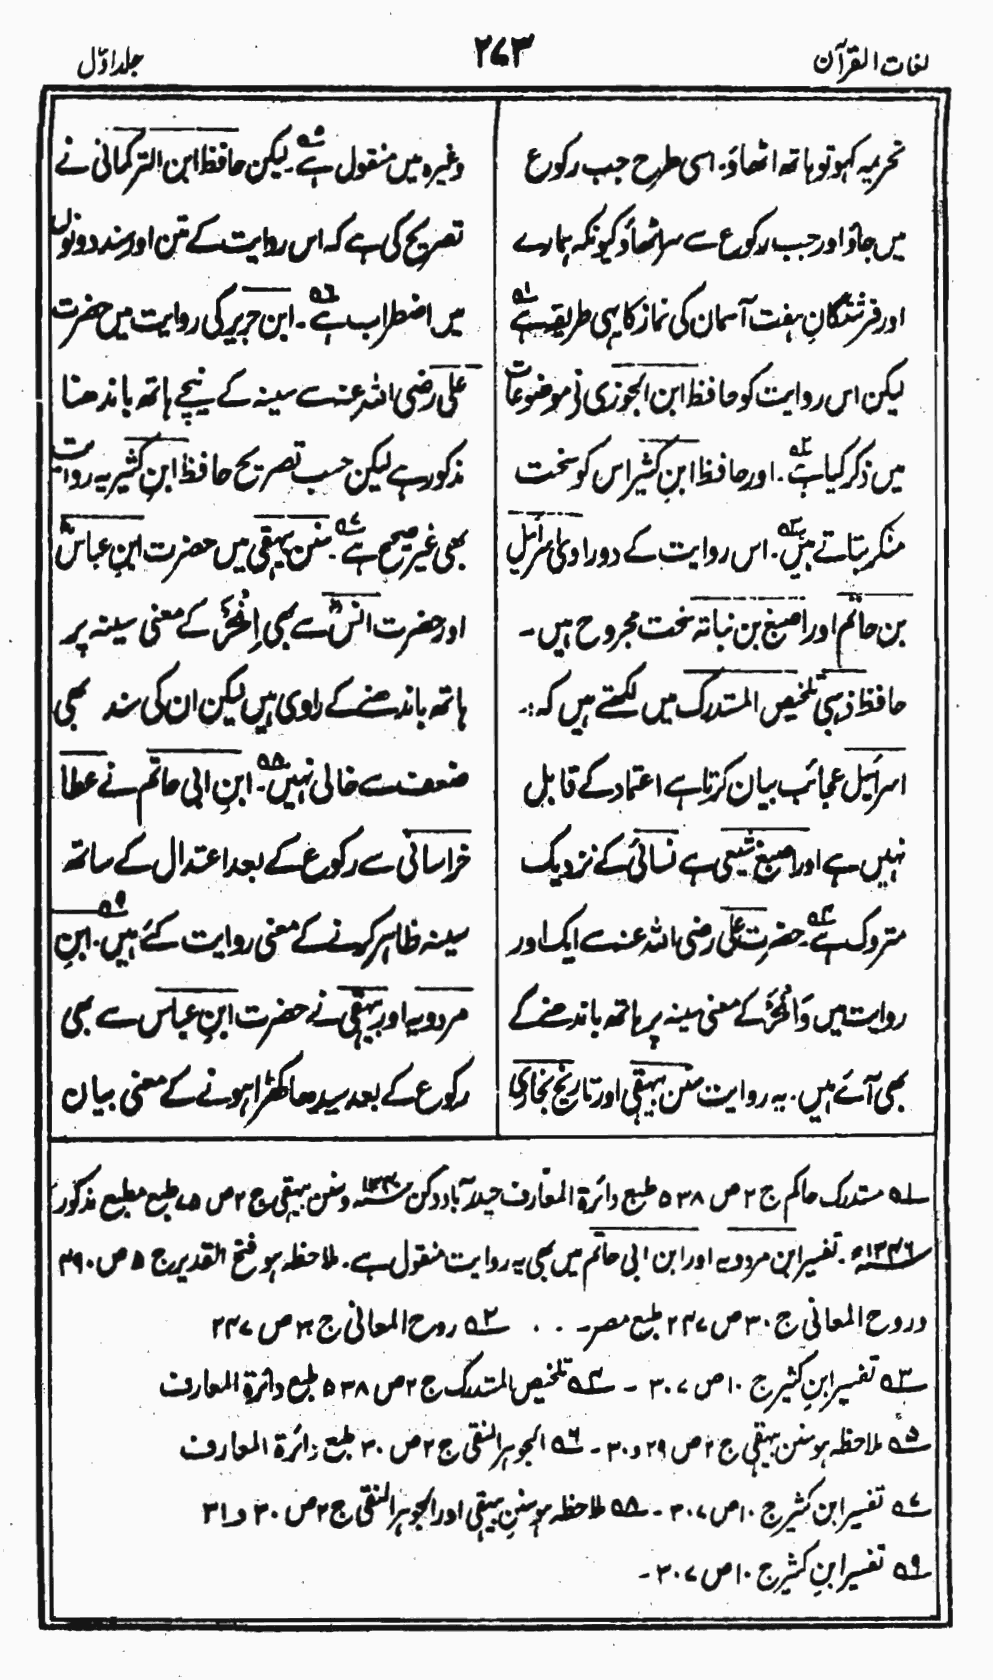 لغات القرآن ۲۷۳ جلد اوّل
تحریمہ کہو تو ہاتھ اٹھاؤ۔ اسی طرح جب رکوع
میں جاؤ اور جب رکوع سے سر اٹھاؤ کیونکہ ہمارے
اور فرشتگانِ ہفت آسمان کی نماز کا یہی طریقہ ہے ۱ھ
لیکن اس روایت کو حافظ ابن الجوزی نے موضوعات
میں ذکر کیا ہے ۲ھ۔ اور حافظ ابنِ کثیر اس کو سخت
منکر بتاتے ہیں ۳ھ۔ اس روایت کے دو راوی اسرائیل
بن حاتم اور اصبغ بن نباتہ سخت مجروح ہیں۔
حافظ ذہبی تلخیص المستدرک میں لکھتے ہیں کہ:۔
اسرائیل عجائب بیان کرتا ہے اعتماد کے قابل
نہیں ہے اور اصبغ شیعی ہے نسائی کے نزدیک
متروک ہے ۴ھ۔ حضرت علی رضی اللہ عنہ سے ایک اور
روایت میں وَانْحَرْ کے معنی سینہ پر ہاتھ باندھنے کے
بھی آئے ہیں۔ یہ روایت سنن بیہقی اور تاریخ بخاری
وغیرہ میں منقول ہے ۵ھ۔ لیکن حافظ ابن الترکمانی نے
تصریح کی ہے کہ اس روایت کے متن اور سند دونوں
میں اضطراب ہے ۶ھ۔ ابن جریر کی روایت میں حضرت
علی رضی اللہ عنہ سے سینہ کے نیچے ہاتھ باندھنا
مذکور ہے لیکن حسب تصریح حافظ ابنِ کثیر یہ روایت
بھی غیر صحیح ہے ۷ھ۔ سنن بیہقی میں حضرت ابنِ عباسؓ
اور حضرت انسؓ سے بھی اِنْحَرْ کے معنی سینہ پر
ہاتھ باندھنے کے راوی ہیں لیکن ان کی سند بھی
ضعف سے خالی نہیں ۸ھ۔ ابنِ ابی حاتم نے عطا
خراسانی سے رکوع کے بعد اعتدال کے ساتھ
سینہ ظاہر کرنے کے معنی روایت کئے ہیں ۹ھ۔ ابنِ
مردویہ اور بیہقی نے حضرت ابنِ عباس سے بھی
رکوع کے بعد سیدھا کھڑا ہونے کے معنی بیان
۱ھ مستدرک حاکم ج ۲ ص ۵۳۸ طبع دائرۃ المعارف حیدرآباد دکن ۱۳۴۰ھ و سنن بیہقی ج ۲ ص ۷۵ طبع مطبع مذکور
۱۳۴۶ھ۔ تفسیر ابن مردویہ اور ابن ابی حاتم میں بھی یہ روایت منقول ہے۔ ملاحظہ ہو فتح القدیر ج ۵ ص ۴۹۰
و روح المعانی ج ۳۰ ص ۲۴۷ طبع مصر۔ ۲ھ روح المعانی ج ۳۰ ص ۲۴۷
۳ھ تفسیر ابنِ کثیر ج ۱۰ ص ۳۰۷ ۔ ۴ھ تلخیص المستدرک ج ۲ ص ۵۳۸ طبع دائرۃ المعارف
۵ھ ملاحظہ ہو سنن بیہقی ج ۲ ص ۲۹ و ۳۰ ۔ ۶ھ الجوہر النقی ج ۲ ص ۳۰ طبع دائرۃ المعارف
۷ھ تفسیر ابن کثیر ج ۱۰ ص ۳۰۷ ۔ ۸ھ ملاحظہ ہو سنن بیہقی اور الجوہر النقی ج ۲ ص ۳۰ و ۳۱
۹ھ تفسیر ابنِ کثیر ج ۱۰ ص ۳۰۷ ۔